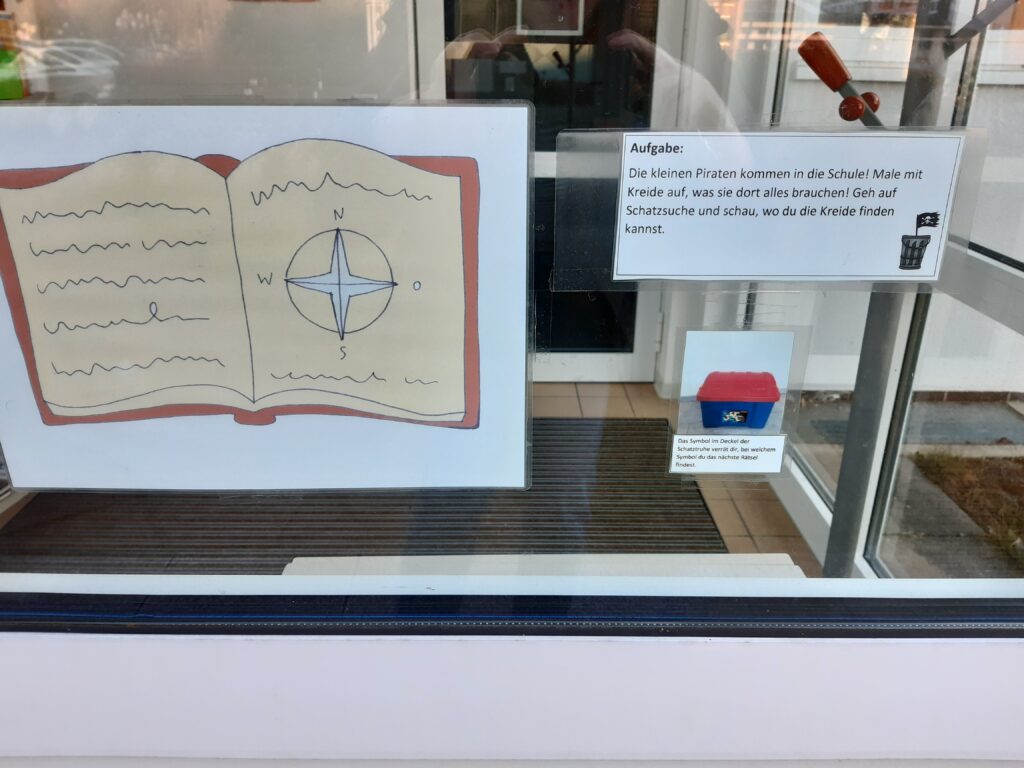 N
W
O
S
Aufgabe:
Die kleinen Piraten kommen in die Schule! Male mit
Kreide auf, was sie dort alles brauchen! Geh auf
Schatzsuche und schau, wo du die Kreide finden
kannst.
Das Symbol im Deckel der
Schatztruhe verrät dir, bei welchem
Symbol du das nächste Rätsel
findest.